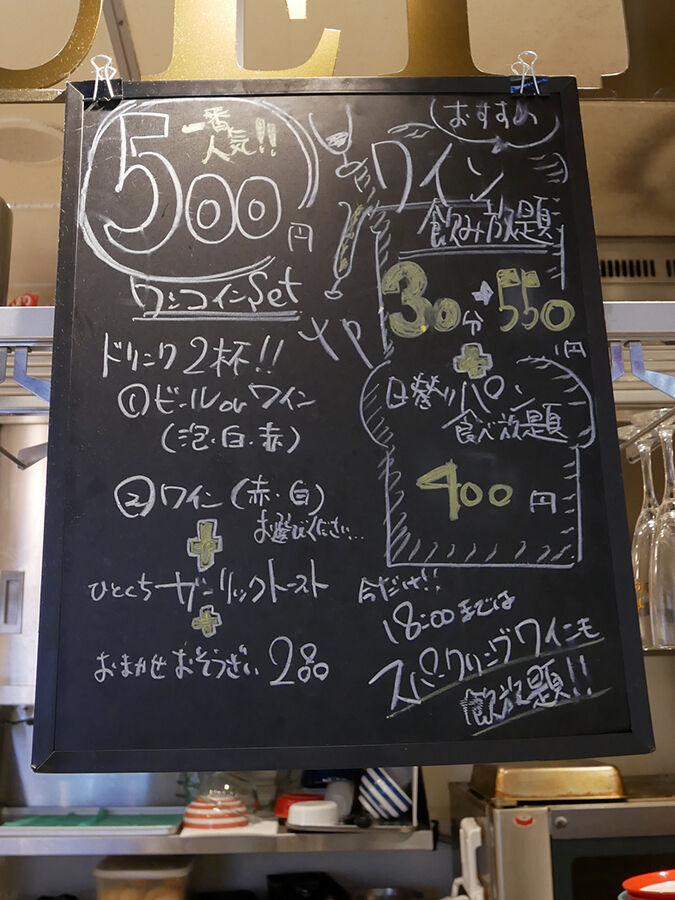 500円
一番
人気!!
ワンコインSet
ドリンク2杯!!
①ビールorワイン
(泡・白・赤)
②ワイン(赤・白)
お選びください...
+
ひとくちガーリックトースト
+
おまかせおそうざい2品
おすすめ
ワイン
飲み放題
30分→550円
+
日替りパン
食べ放題
400円
今だけ!!
18:00までは
スパークリングワインも
飲放題!!